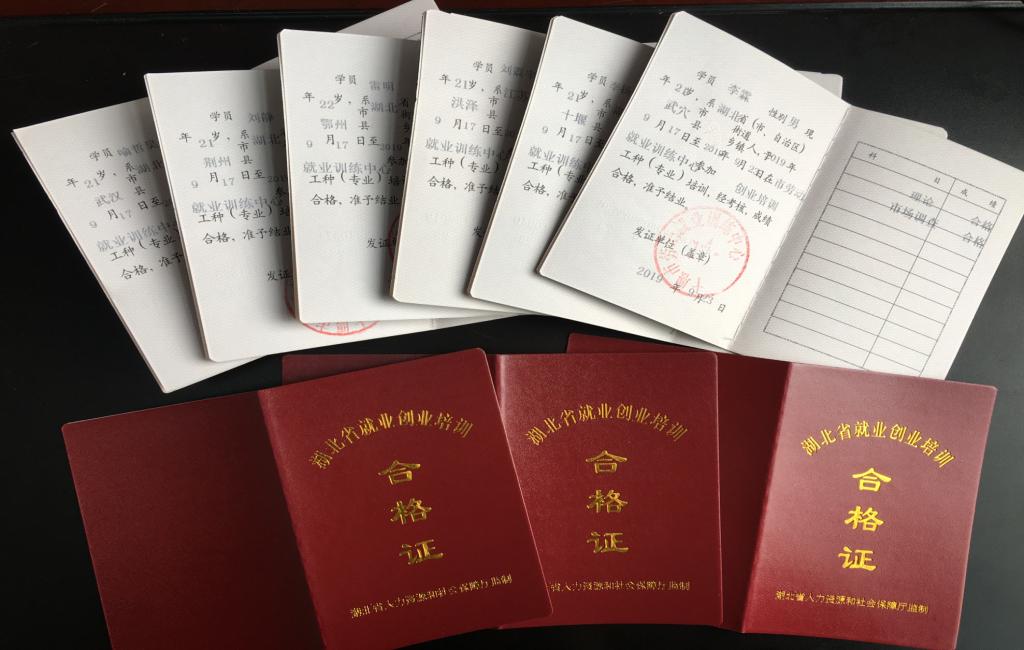 学员
21岁，系湖北
市
武汉 县
9月17日至
就业训练中心
工种（专业）培
合格，准予结
学员 刘
年 21岁，系湖北
市
荆州 县
9月17日至201
就业训练中心
工种（专业）培
合格，准予结业
发证
学员 雷明
年 22岁，系湖北
市
鄂州 县
9月17日至2019
就业训练中心 参加
工种（专业）培
合格，准予结业
发证单
学员 刘
年 21岁，系江苏
市
洪泽 县
9月17日至2019
就业训练中心
工种（专业）培
合格，准予结业
学员 李
年 21岁，系
市
十堰 县
9月17日至
就业训练中心
工种（专业）
合格，准予结
学员 李霖 性别 男 现
年 21岁，系 湖北省（市、自治区）
市 街道
武穴 县 乡镇人，于2019年
9月17日至2019年9月2日在市劳动
就业训练中心参加 创业培训
工种（专业）培训，经考核，成绩
合格，准予结业。
发证单位（盖章）
2019年9月23日
科 目 成 绩
理论 合格
市场调查 合格
湖北省就业创业培训
合
格
证
湖北省人力资源和社会保障厅监制
湖北省就业创业培训
合
格
证
省人力资源和社会保障厅监制
湖北省就业创业培训
合
格
证
湖北省人力资源和社会保障厅监制